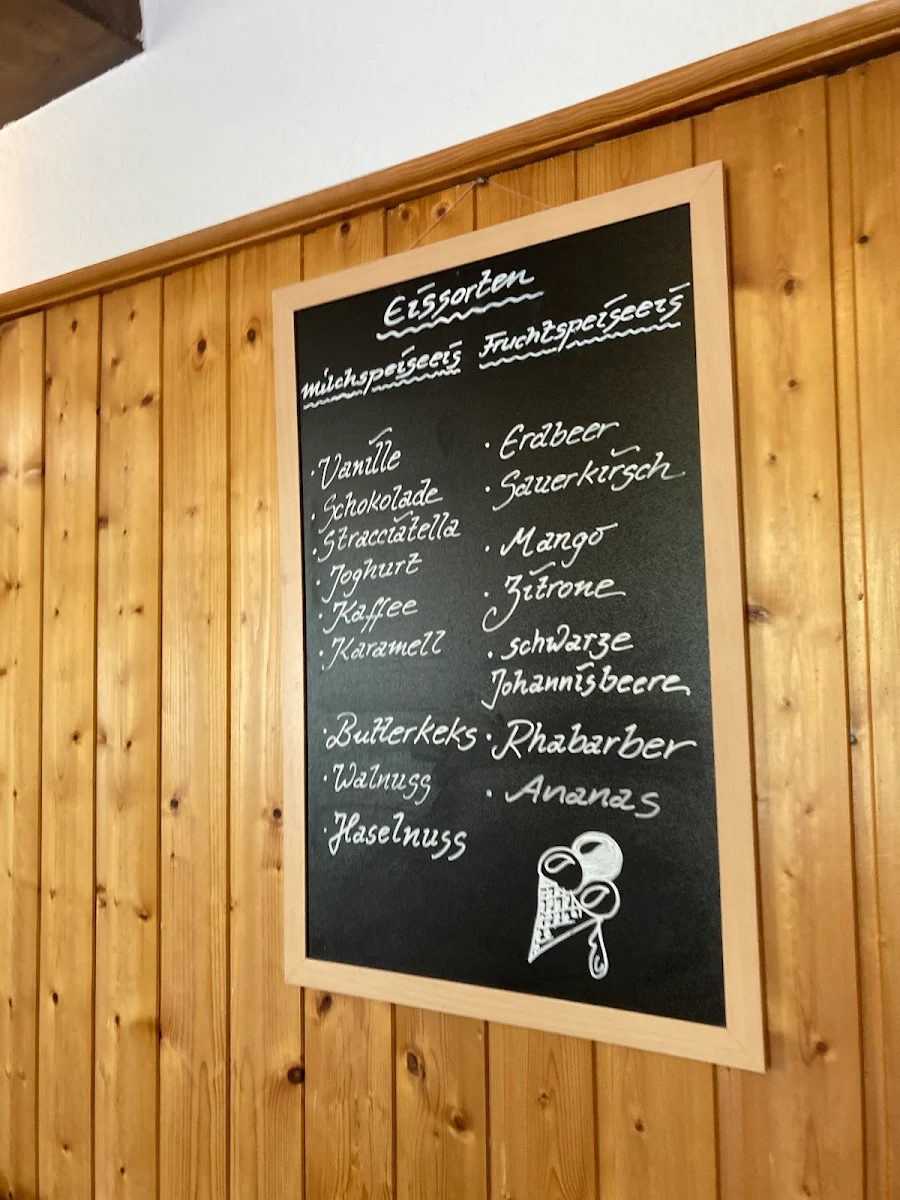 Eissorten
Milchspeiseeis
· Vanille
· Schokolade
· Stracciatella
· Joghurt
· Kaffee
· Karamell
· Butterkeks
· Walnuss
· Haselnuss
Fruchtspeiseeis
· Erdbeer
· Sauerkirsch
· Mango
· Zitrone
· schwarze
Johannisbeere
· Rhabarber
· Ananas